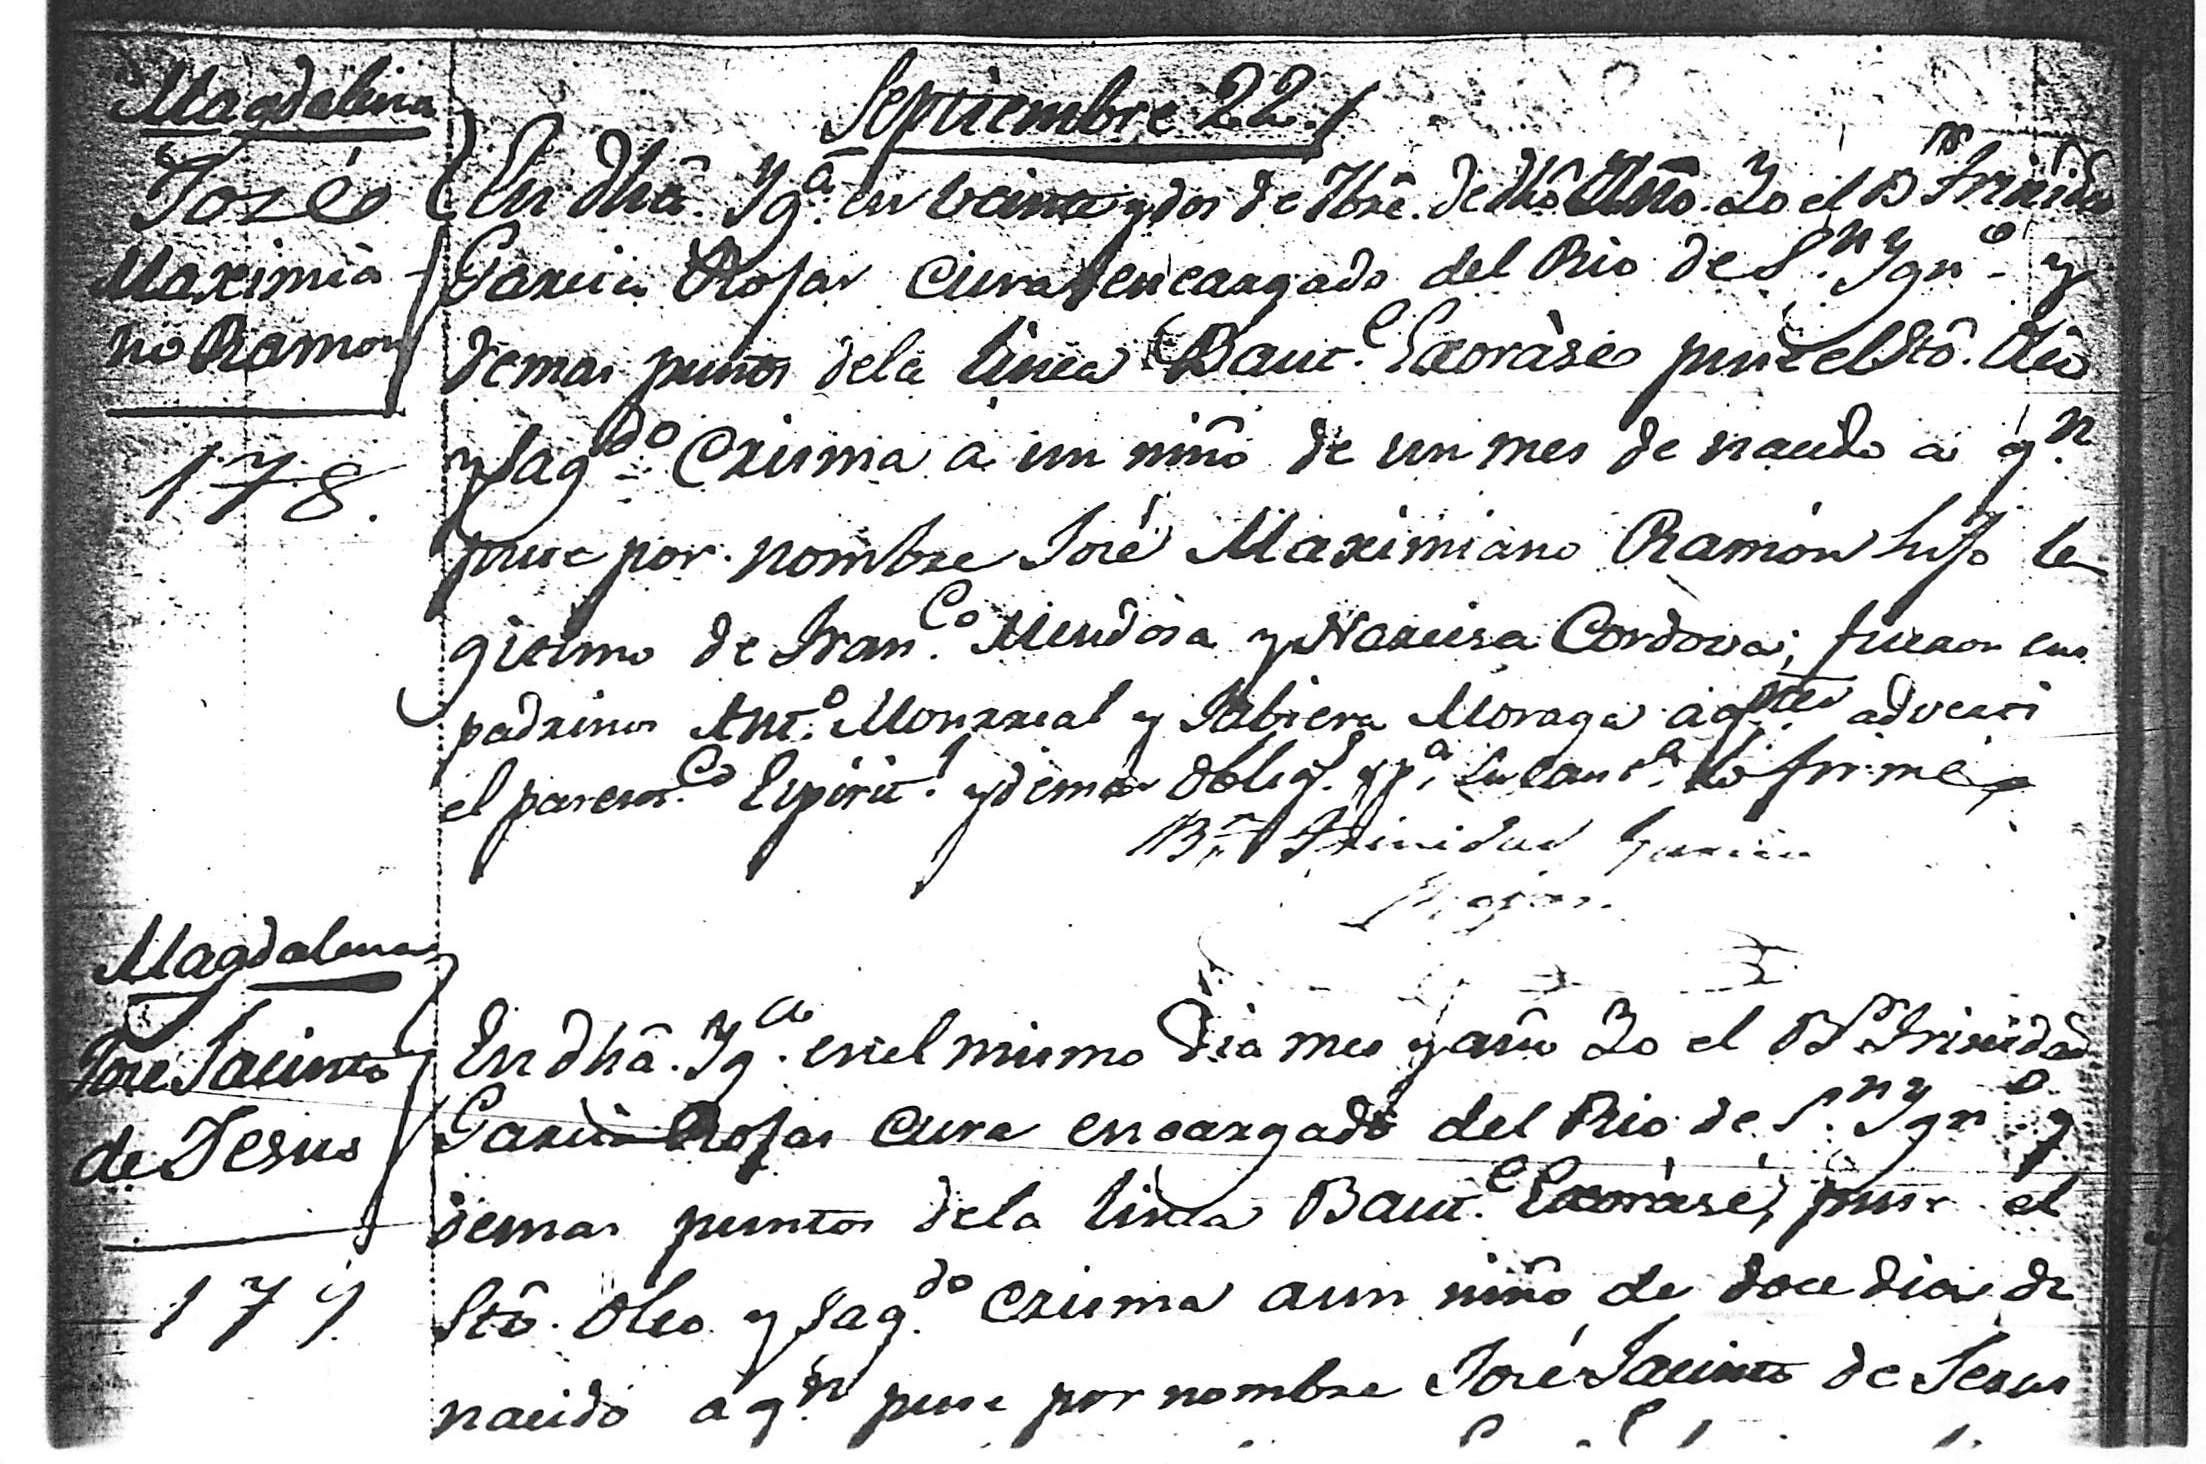 Septiembre 22./
Magdalena
José
Maximia-
no Ramon
178.
En dhã. Yg.ª en veinte y dos de 7bre. de dhõ Año. Yo el Br Trinidad
Garcia Rojas Cura encargado del Rio de S.n Ygn.o y
demas puntos dela linea Baut.e Exorcisé puse el Stõ. Oleo
y Sag.do Crisma á un niño de un mes de nacido a q.n
puse por nombre José Maximiano Ramón hijo le
gitimo de Fran.co Mendosa y Narcisa Cordova; fueron sus
padrinos Ant.o Monrreal y Jabiera Moraga á qnes adverti
el parent.co Espirit.l y demas oblig.s y p.a
lo firmé
Br. Trinidad Garcia
Rojas.
Magdalena
José Jacinto
de Jesus
179.
En dhã. Yg.a en el mismo dia mes y año Yo el Br Trinidad
Garcia Rojas Cura encargado del Rio de S.n Ygn.o y
demas puntos dela linea Baut.e Exorcisé, puse el
Stõ. Oleo y Sag.do Crisma a un niño de doce dias de
nacido a q.n puse por nombre José Jacinto de Jesus